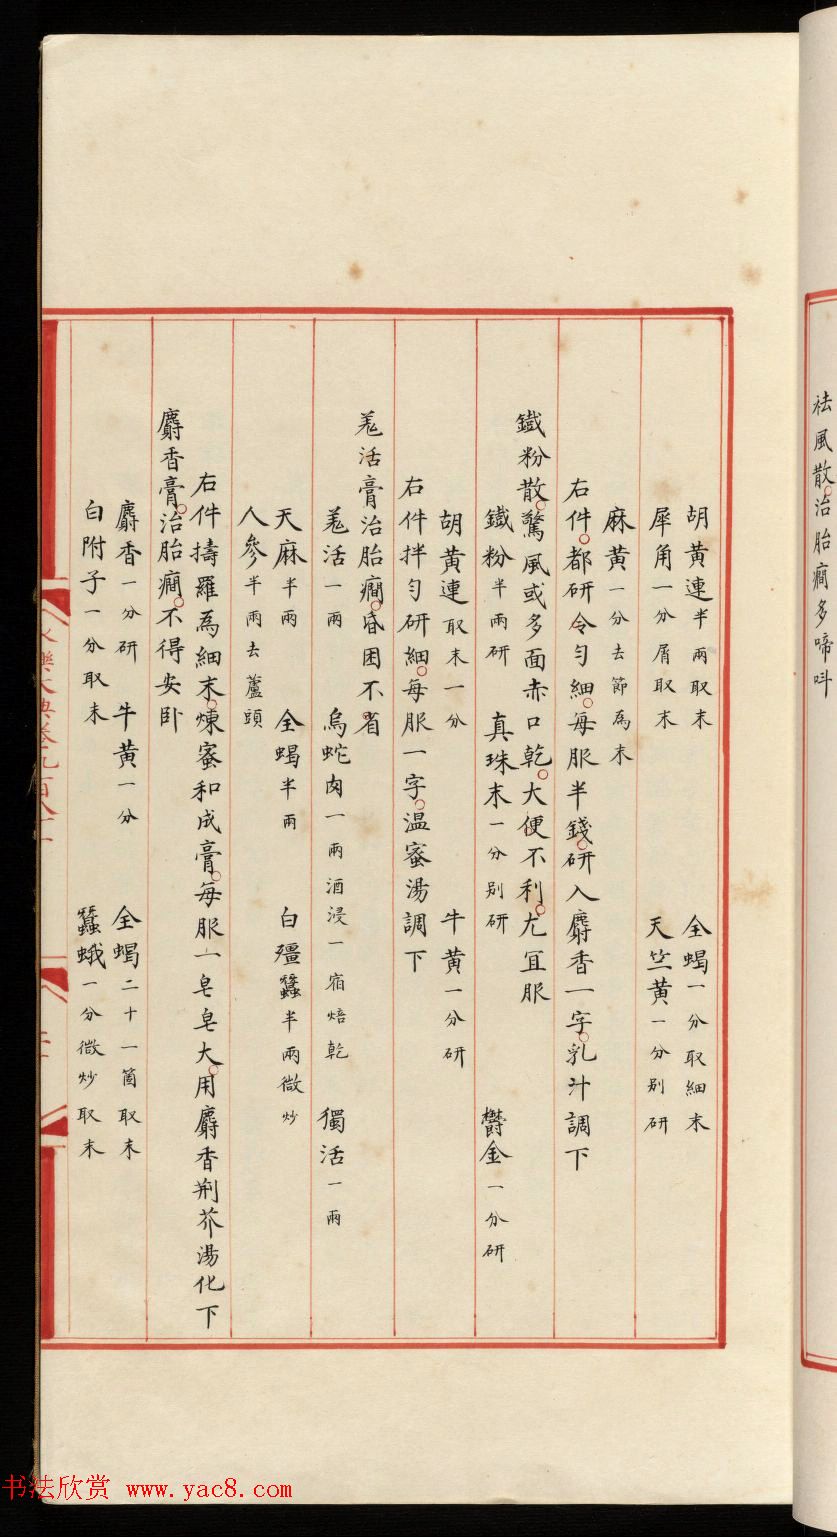 祛風散治胎癎多啼呌
胡黄連半兩取末 全蝎一分取細末
犀角一分屑取末 天竺黄一分别研
麻黄一分去節為末
右件都研令匀細每服半錢研入麝香一字乳汁調下
鐵粉散驚風或多面赤口乾大便不利尤宜服
鐵粉半兩研 真珠末一分别研 欎金一分研
胡黄連取末一分 牛黄一分研
右件拌匀研細每服一字温蜜湯調下
羗活膏治胎癎昏困不省
羗活一兩 烏蛇肉一兩酒浸一宿焙乾 獨活一兩
天麻半兩 全蝎半兩 白殭蠶半兩微炒
人參半兩去蘆頭
右件擣羅為細末煉蜜和成膏每服一皂皂大用麝香荆芥湯化下
麝香膏治胎癎不得安卧
麝香一分研 牛黄一分 全蝎二十一箇取末
白附子一分取末 蠶蛾一分微炒取末
永樂大典卷九百八十一
书法欣赏 www.yac8.com